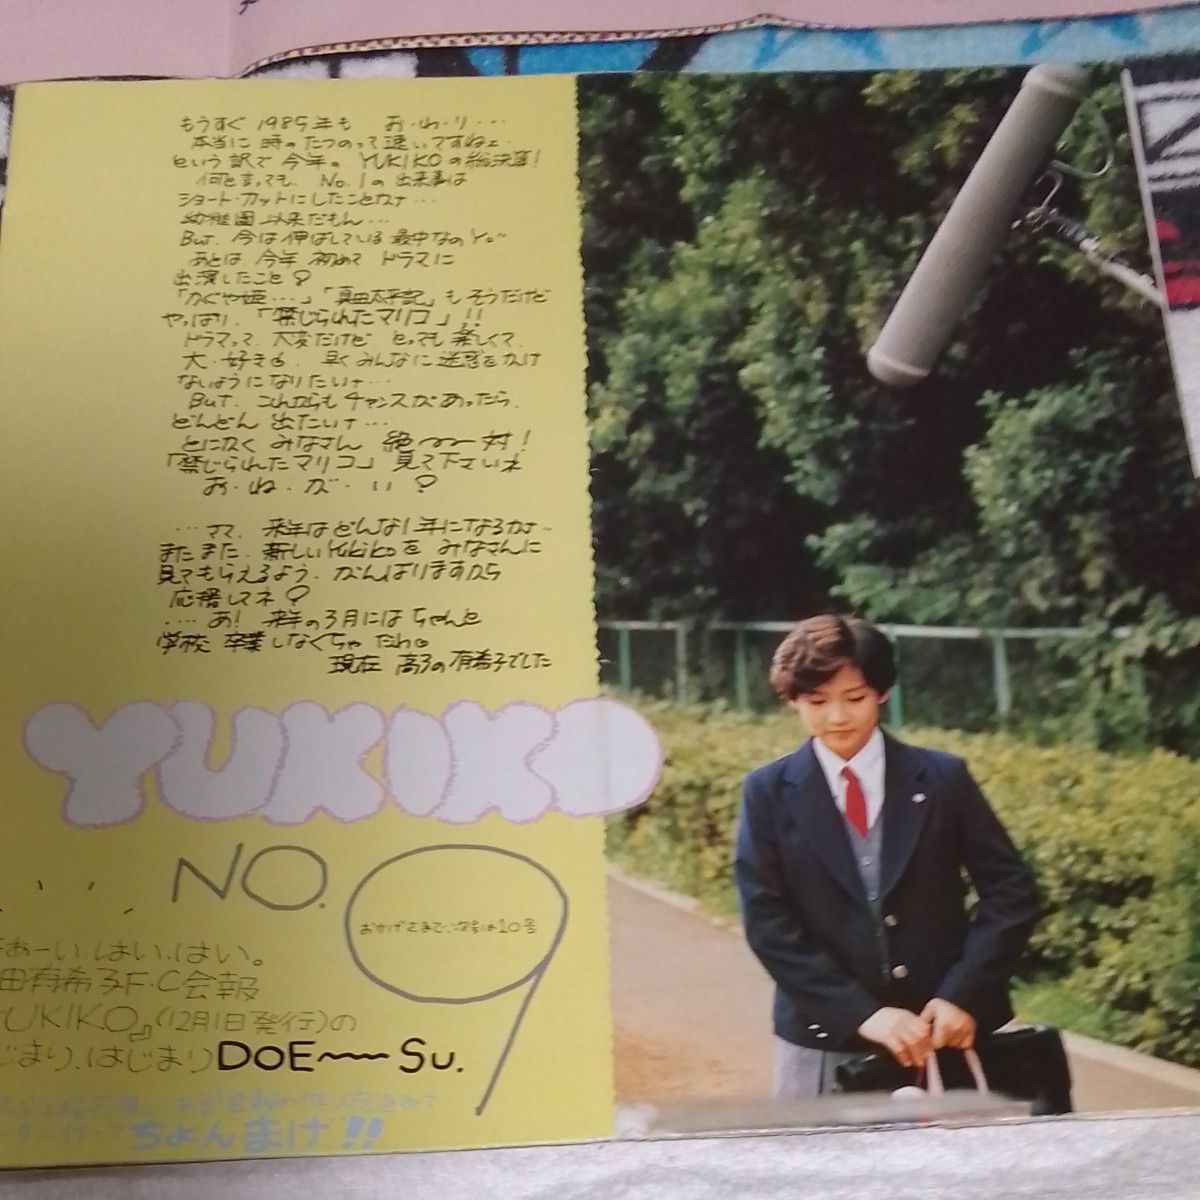 もうすぐ 1985年も お・わ・り・・・
本当に 時のたつのって 速いですねェ
という訳で 今年の YUKIKOの総決算!
何と言っても、No.1の 出来事は
ショート・カットにしたことかナ・・・
幼稚園 以来だもん・・・
But、今は 伸ばしている 最中なのヨ
あとは、今年 初めて ドラマに
出演したこと♀
「かぐや姫・・・」「真田太平記」も そうだけど
やっぱり、「禁じられたマリコ」!!
ドラマって、大変だけど とっても 楽しくて、
大・好き 早くみんなに迷惑をかけ
ないようになりたいナ・・・
But、これからも チャンスがあったら、
どんどん 出たいナ・・・
とにかく みなさん 絶〜〜対!
「禁じられたマリコ」 見て下さいネ
お・ね・が・い♀
・・・ママ、来年はどんな1年になるかナ〜
またまた、新しいYukikoを みなさんに
見てもらえるよう、がんばりますから
応援してネ♀
・・・あ! 来年の3月には ちゃんと
学校 卒業しなくちゃ だわ。
現在 高3の有希子でした
YUKIKO
NO. 9
おかげさまで、次号は10号
あーい、はい、はい。
田有希子F・C会報
YUKIKO』(12月1日発行)の
じまり、はじまりDOE〜〜Su.
ちょんまげ!!